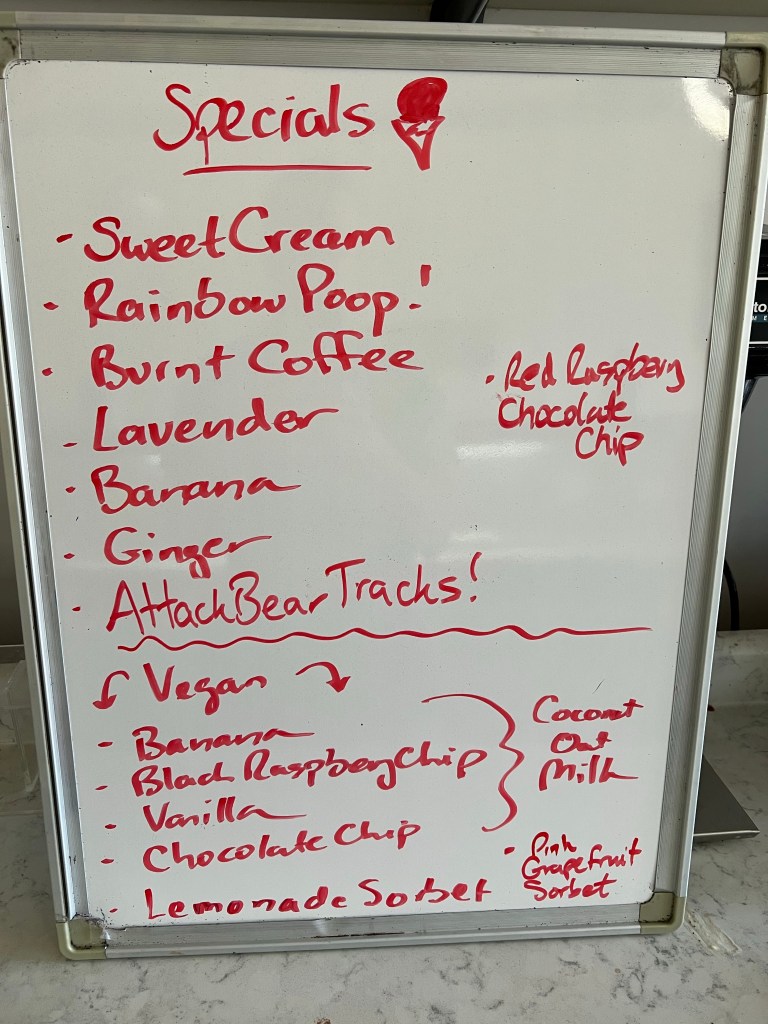 Specials
- Sweet Cream
- Rainbow Poop!
- Burnt Coffee
- Lavender
- Banana
- Ginger
- Attack Bear Tracks!
- Red Raspbery
Chocolate
Chip
Vegan
- Banana
- Black Raspbery Chip
- Vanilla
- Chocolate Chip
Coconut
Oat
Milk
- Lemonade Sorbet
- Pink
Grapefruit
Sorbet